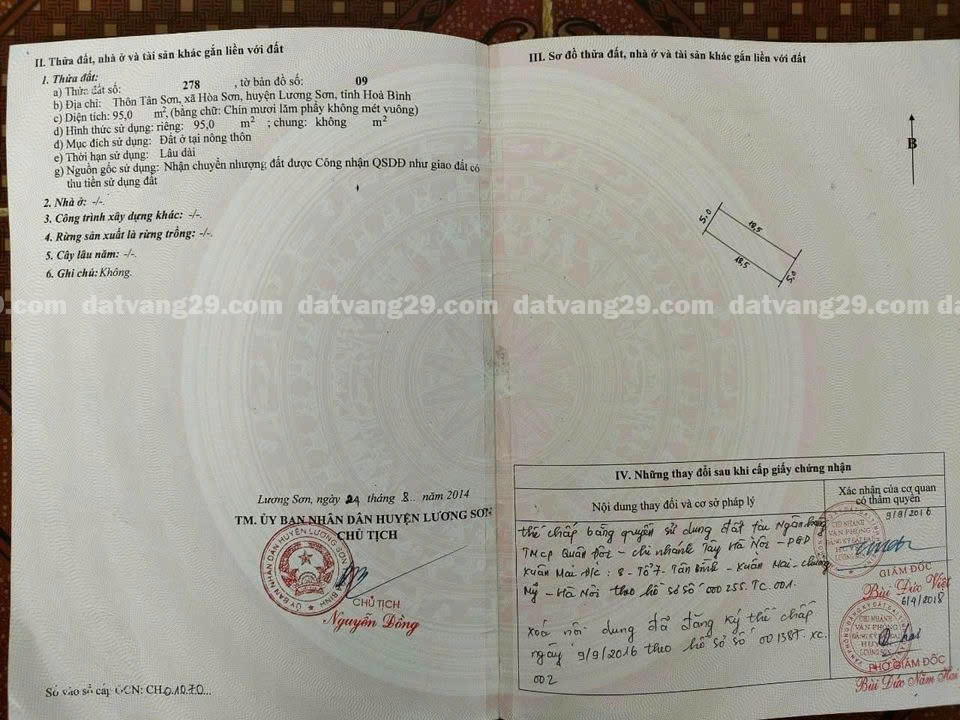 II. Thửa đất, nhà ở và tài sản khác gắn liền với đất
1. Thửa đất:
a) Thửa đất số: 278 , tờ bản đồ số: 09
b) Địa chỉ: Thôn Tân Sơn, xã Hòa Sơn, huyện Lương Sơn, tỉnh Hoà Bình
c) Diện tích: 95,0 m², (bằng chữ: Chín mươi lăm phẩy không mét vuông)
d) Hình thức sử dụng: riêng: 95,0 m² ; chung: không m²
đ) Mục đích sử dụng: Đất ở tại nông thôn
e) Thời hạn sử dụng: Lâu dài
g) Nguồn gốc sử dụng: Nhận chuyển nhượng đất được Công nhận QSDĐ như giao đất có
thu tiền sử dụng đất
2. Nhà ở: -/-.
3. Công trình xây dựng khác: -/-.
4. Rừng sản xuất là rừng trồng: -/-.
5. Cây lâu năm: -/-.
6. Ghi chú: Không.
III. Sơ đồ thửa đất, nhà ở và tài sản khác gắn liền với đất
B
5,0
5,0
.com datvang29.com datvang29.com datvang29.com datvang29.com datvang29.com
Lương Sơn, ngày 29 tháng 8 năm 2014
TM. ỦY BAN NHÂN DÂN HUYỆN LƯƠNG SƠN
CHỦ TỊCH
CHỦ TỊCH
Nguyễn Đồng
Số vào sổ cấp GCN: CH01070...
IV. Những thay đổi sau khi cấp giấy chứng nhận
Nội dung thay đổi và cơ sở pháp lý
Xác nhận của cơ quan
có thẩm quyền
thế chấp bằng quyền sử dụng đất tại Ngân hàng
TMCP Quân Đội - chi nhánh Tây Hà Nội - PGD
Xuân Mai Đ/c: 8 - Tổ 7 - Tân Bình - Xuân Mai - chương
Mỹ - Hà Nội theo hồ sơ số 000255.TC.001.
9/9/2016
GIÁM ĐỐC
Bùi Đức Việt
Xoá nội dung đã đăng ký thế chấp
ngày 9/9/2016 theo hồ sơ số
002
6/4/2018
PHÓ GIÁM ĐỐC
Bùi Đức Nằm